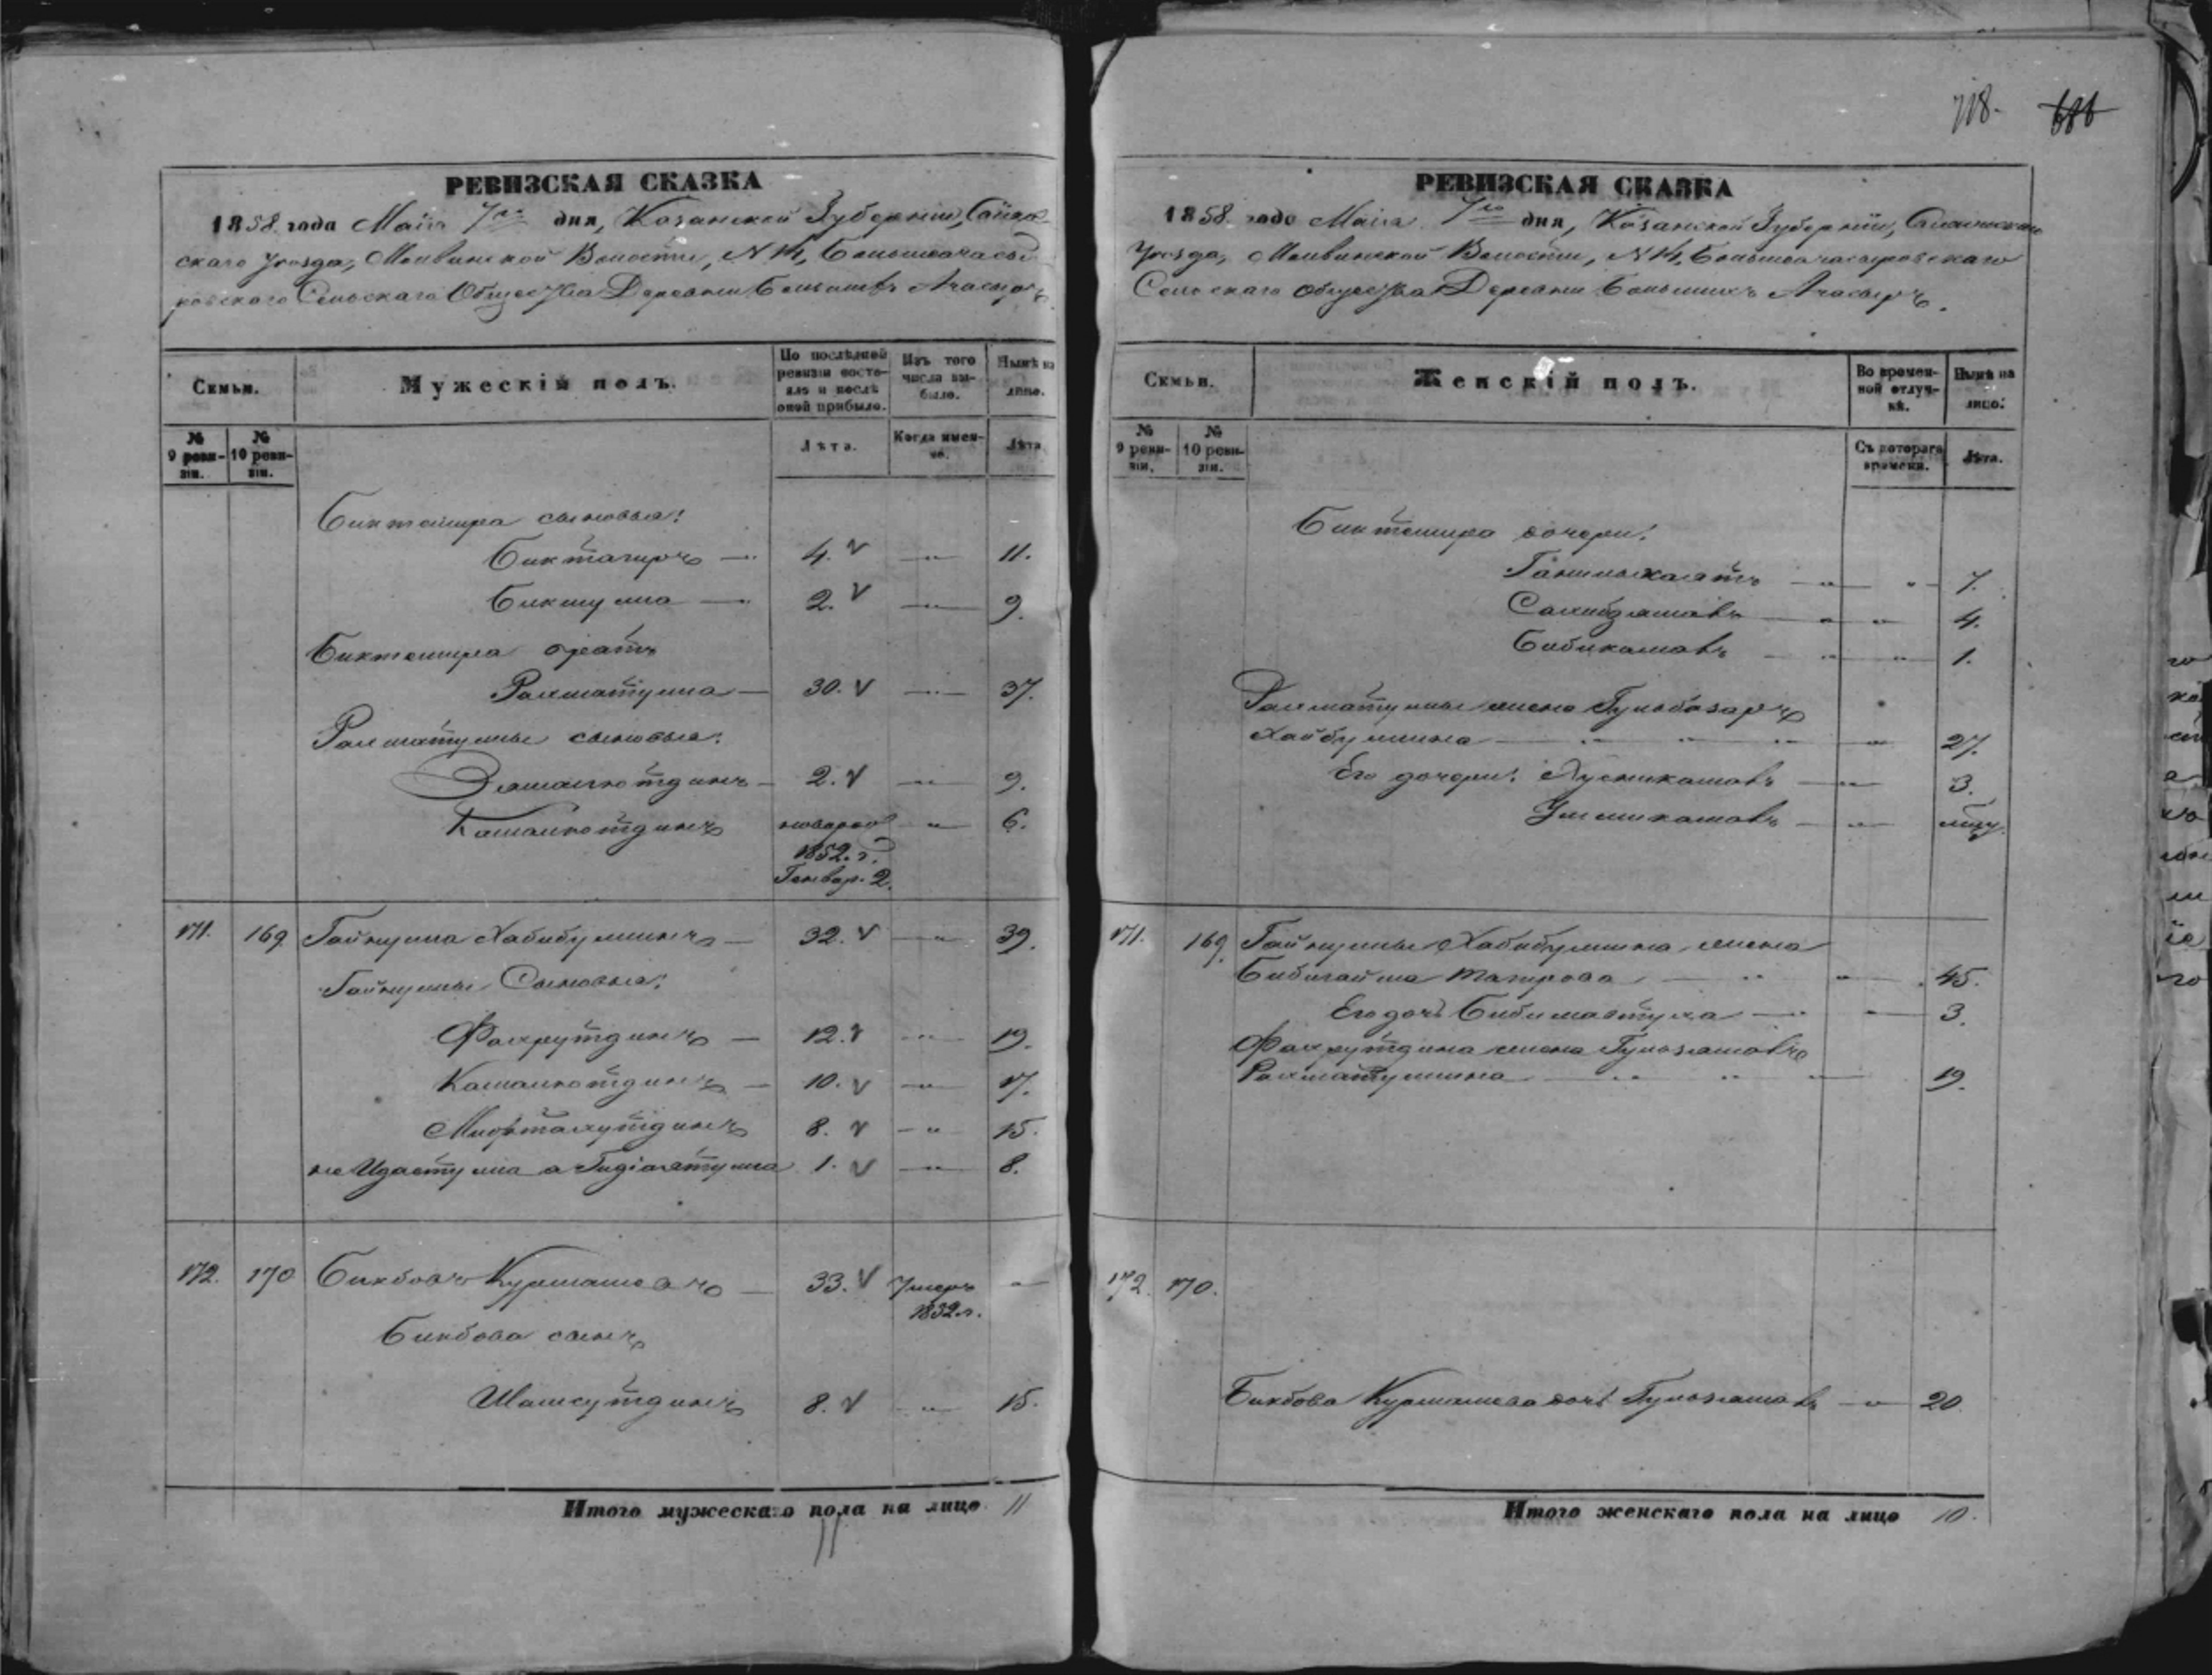 718. 686
РЕВИЗСКАЯ СКАЗКА
1858 года Маія 7го дня, Казанской Губерніи,
скаго Уѣзда, Волости, № 14,
Сельскаго Общества Деревни Ачасыръ
Семьи.
Мужескій полъ.
По послѣдней ревизіи состояло и послѣ оной прибыло.
Изъ того числа выбыло.
Нынѣ на лицо.
№ 9 ревизіи.
№ 10 ревизіи.
Лѣта.
Когда именно.
Лѣта
Биктемира сыновья:
Биктагиръ — 4. — 11.
Бикмулла — 2. — 9.
Биктемира братъ
Рахматулла — 30. — 37.
Рахматуллы сыновья:
Замалютдинъ — 2. — 9.
Камалютдинъ новорож — 6.
1852. г.
Генвар. 2.
171. 169. Гайнулла Хабибуллинъ — 32. — 39.
Гайнуллы Сыновья:
Фахрутдинъ — 12. — 19.
Камалютдинъ — 10. — 17.
Мифтахутдинъ 8. — 15.
не Идаетулла а Гидіятулла 1. — 8.
172. 170 Бикбовъ Курмашевъ — 33. Умеръ —
1832 г.
Бикбова сынъ
Шамсутдинъ 8. — 15.
Итого мужескаго пола на лицо 11
11
РЕВИЗСКАЯ СКАЗКА
1858 года Маія 7го дня, Казанской Губерніи,
Уѣзда, Волости, № 14,
Сельскаго Общества Деревни Большихъ Ачасыръ.
Семьи.
Женскій полъ.
Во временной отлучкѣ.
Нынѣ на лицо.
№ 9 ревизіи.
№ 10 ревизіи.
Съ котораго времени.
Лѣта.
Биктемира дочери:
7.
4.
Бибикамалъ — 1.
Рахматуллы жена Гульбазаръ
Хайбуллина — 27.
Его дочери: Хусникамалъ — 3.
Уммикамалъ —
171. 169. Гайнуллы Хабибуллина жена
Бибигайша Тагирова — 45.
Его дочь — 3.
Фахрутдина жена Гульзямалъ
Рахматуллина — 19.
172. 170.
Бикбова Курмашева дочь Гульзямалъ — 20
Итого женскаго пола на лицо 10.